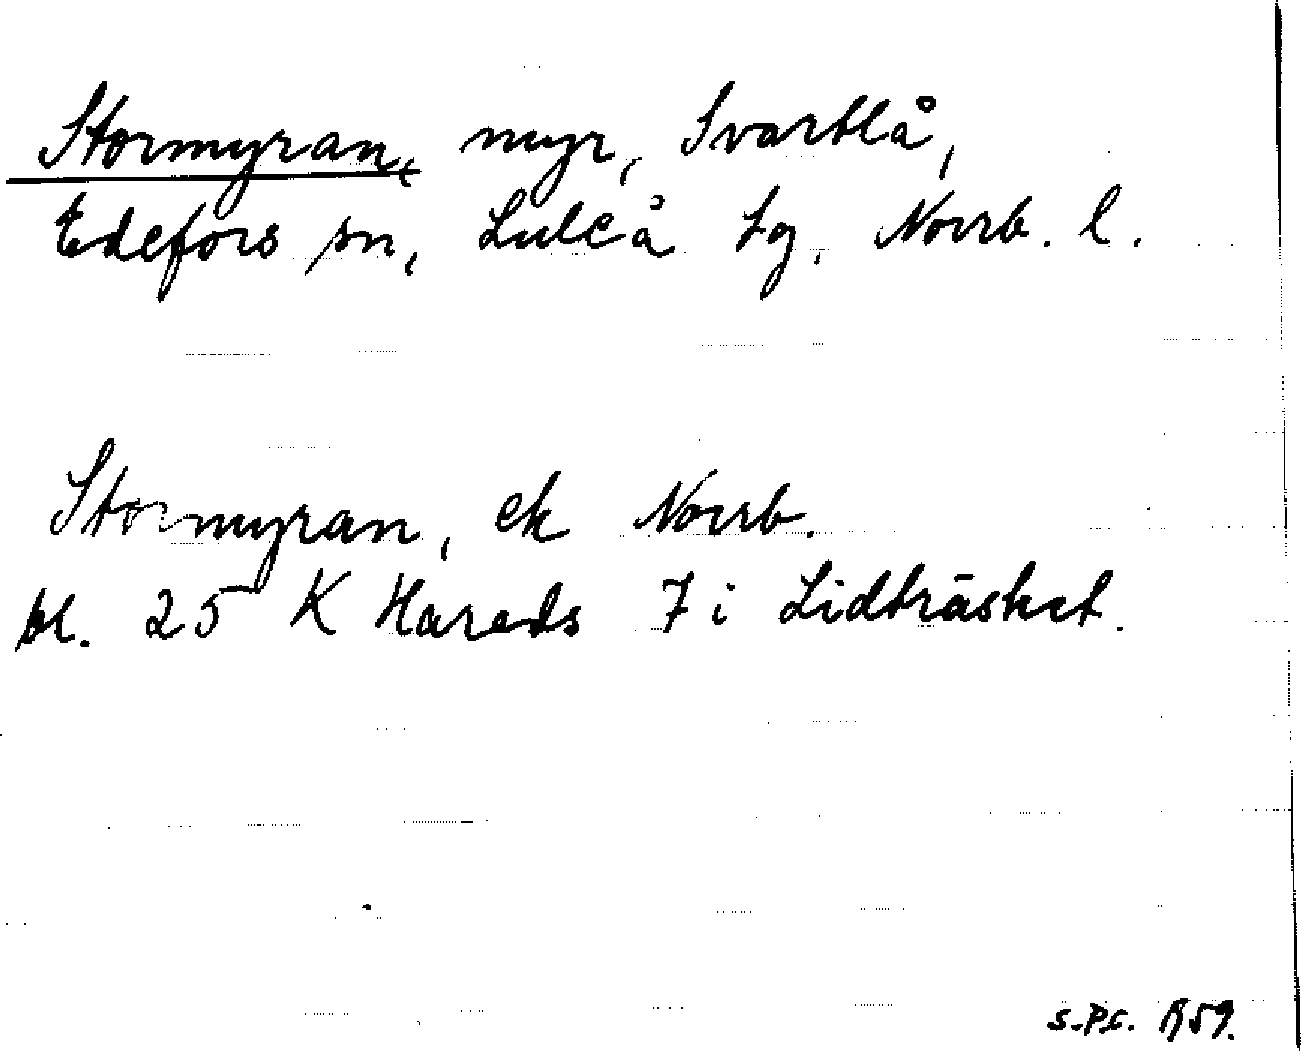 Stormyran, myr, Svartlå,
Edefors sn, Luleå tg, Norrb. l.
Stormyran, ek Norrb.
bl. 25 K Harads 7 i Lidträsket.
S-P.C. 1959.